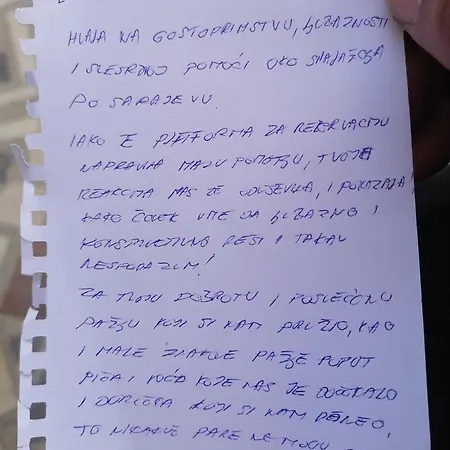 HVALA NA GOSTOPRIMSTVU, LJUBAZNOSTI
I SVESRDNOJ POMOĆI OKO SNALAŽENJA
PO SARAJEVU.
IAKO JE PLATFORMA ZA REZERVACIJU
NAPRAVILA MALU POMUTNJU, TVOJA
REAKCIJA NAS JE ODUŠEVILA, I POKAZALA
KAKO ČOVEK UME DA LJUBAZNO I
KONSTRUKTIVNO REŠI I TAKAV
NESPORAZUM!
ZA TVOJU DOBROTU I POSVEĆENU
PAŽNJU KOJU SI NAM PRUŽIO, KAO
I MALE ZNAKOVE PAŽNJE POPUT
PIĆA I VOĆA KOJE NAS JE DOČEKALO
I DORUČKA KOJI SI NAM DONEO,
TO NIKAKVE PARE NE MOGU